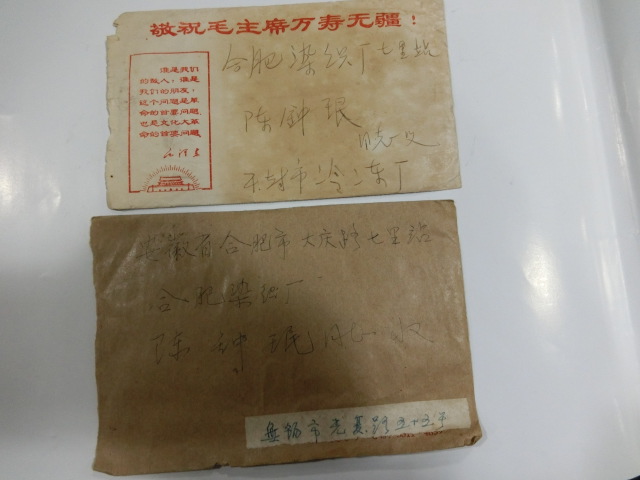 敬祝毛主席万寿无疆！
谁是我们
的敌人？谁是
我们的朋友？
这个问题是革
命的首要问题，
也是文化大革
命的首要问题。
毛泽东
合肥染织厂七里站
陈钟珉
收
开封市冷冻厂
安徽省合肥市大庆路七里站
合肥染织厂
陈钟珉 收
无锡市光复路五十五号